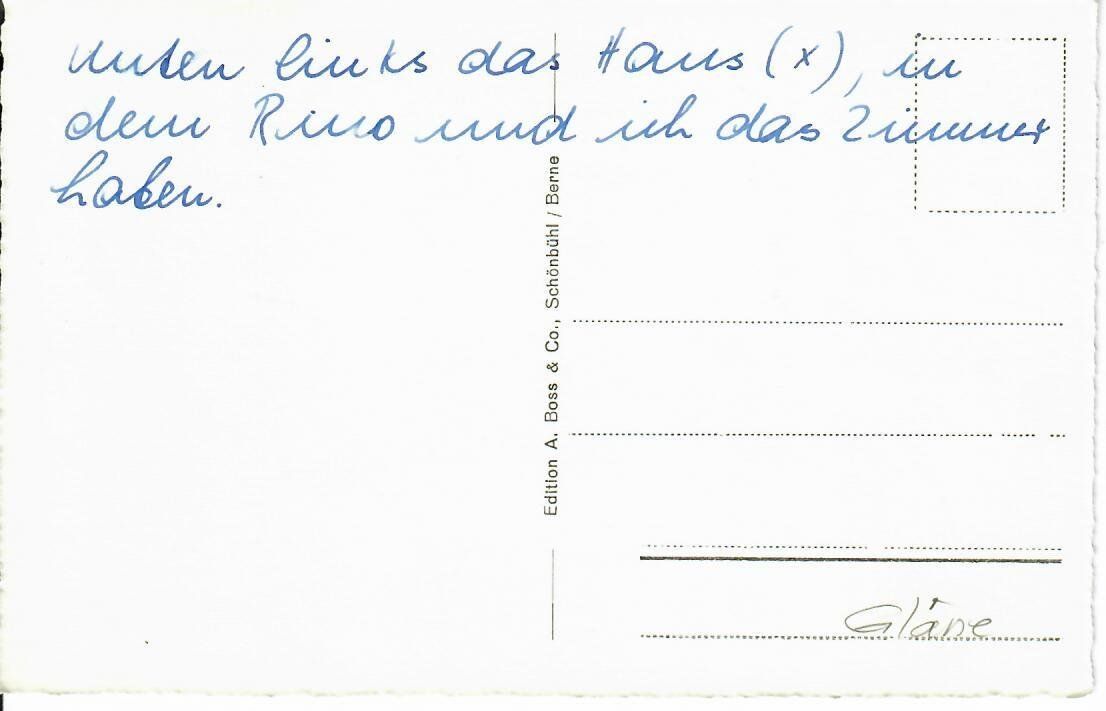 unten links das Haus (x), in
dem Rino und ich das Zimmer
haben.
Edition A. Boss & Co., Schönbühl / Berne
Glâne